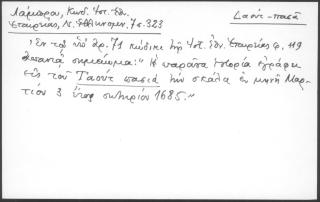 Λάμπρου, Κωδ. Ἱστ. Ἐθν.
Ἑταιρίας, Ν. Ἑλληνομν. 7 σ. 323
Δαούτ-πασᾶ
Ἐν τῷ ὑπ' ἀρ. 71 κώδικι τῆς Ἱστ. Ἐθν. Ἑταιρίας φ. 119
ἀπαντᾷ σημείωμα: "Ἡ παροῦσα ἱστορία ἐγράφη
εἰς τοῦ Ταούτ πασιά τὴν σκάλα ἐν μηνὶ Μαρ-
τίου 3 ἔτος σωτηρίου 1685."